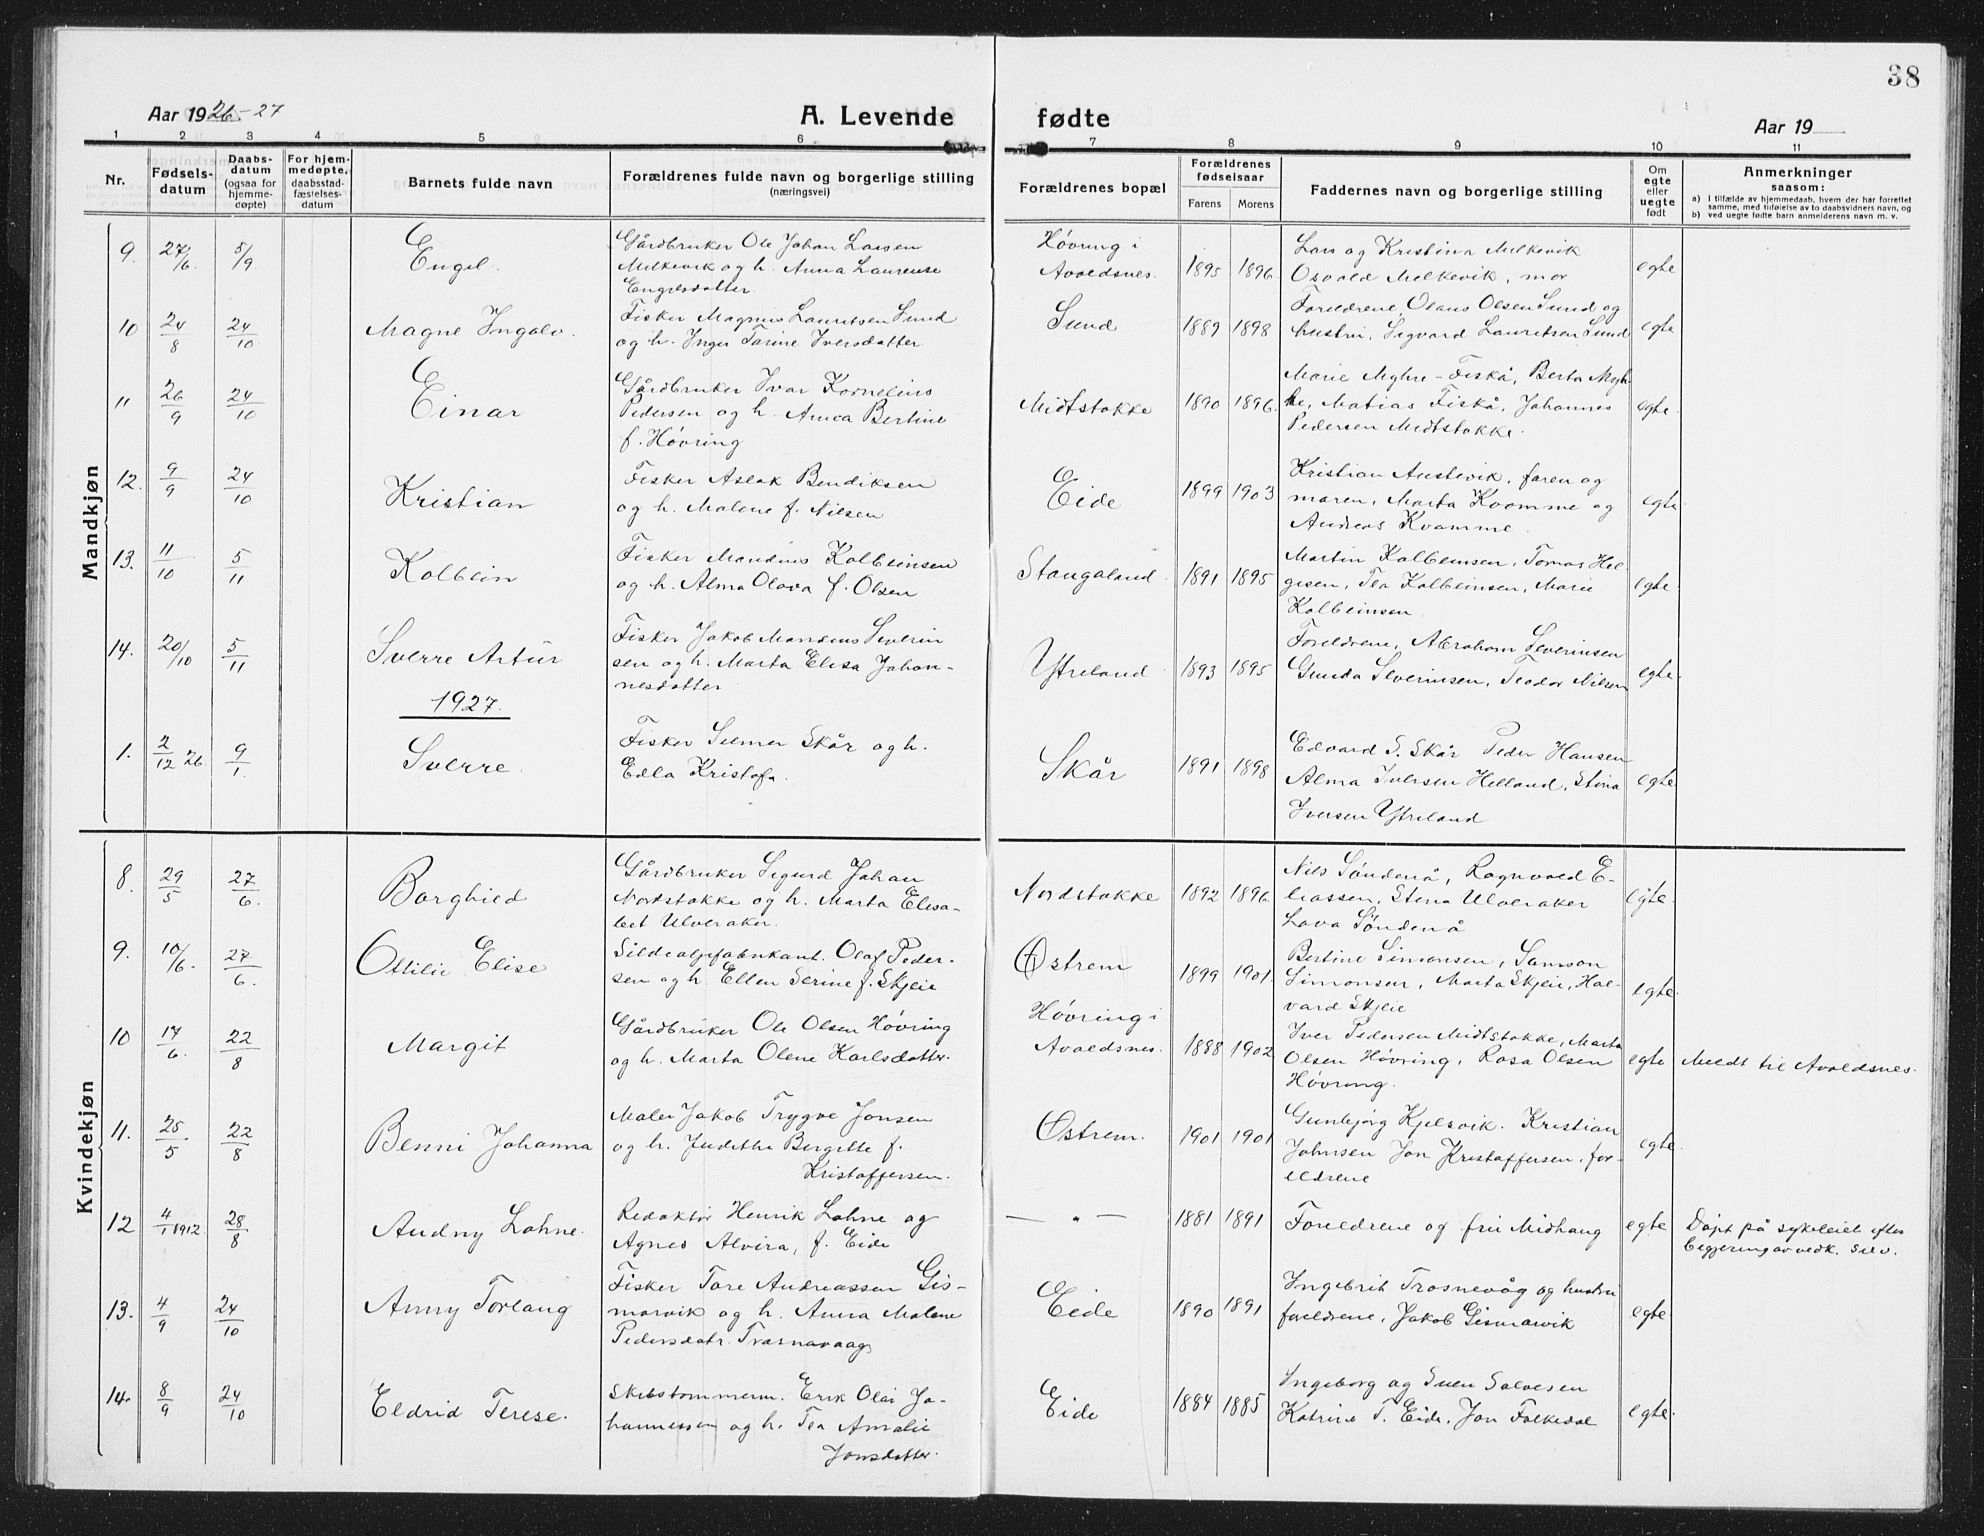 38
Aar 1926-27
A. Levende fødte
Aar 19
1 2 3 4 5 6 7 8 9 10 11
Nr.
Fødsels-
datum
Daabs-
datum
(ogsaa for
hjemme-
døpte)
For hjem-
medøpte,
daabsstad-
fæstelses-
datum
Barnets fulde navn
Forældrenes fulde navn og borgerlige stilling
(næringsvei)
Forældrenes bopæl
Forældrenes
fødselsaar
Farens Morens
Faddernes navn og borgerlige stilling
Om
egte
eller
uegte
født
Anmerkninger
saasom:
a) I tilfælde av hjemmedaab, hvem der har forrettet
samme, med tilføielse av to daabsvidners navn, og
b) ved uegte fødte barn anmelderens navn m. v.
Mandkjøn
9. 27/6. 5/9 Engel.
Gårdbruker Ole Johan Lassen
Milkevik og h. Anna Laurense
Engelsdatter
Høvring i
Avaldsnes. 1895 1896
Lars og Kristina Milkevik
Osvald Milkevik, mor
egte
10 24/8 24/10 Magne Ingolv.
Fisker Magnus Lauritsen Sund
og h. Inger Tarine Iversdatter
Sund 1889 1898
Foreldrene, Olaus Olsen Sund og
hustru, Sigvard Lauritsen Sund
egte
11 26/9 24/10 Einar
Gårdbruker Ivar Kornelius
Pedersen og h. Anna Bertine
f. Høvring
Midtstokke 1890 1896.
Marie Myhre-Fiskå, Berta Myh-
re, Matias Fiskå, Johannes
Pedersen Midtstokke.
egte.
12. 9/9 24/10 Kristian
Fisker Aslak Bendiksen
og h. Malene f. Nilsen
Eide 1899 1903
Kristian Austevik, faren og
moren, Marta Kvamme og
Andreas Kvamme.
egte
13. 11/10 5/11 Kolbein
Fisker Mandius Kolbeinsen
og h. Alma Olava f. Olsen
Stangaland. 1891 1895
Martin Kolbeinsen, Tomas Hel-
gesen, Tea Kolbeinsen, Marie
Kolbeinsen
egte.
14. 20/10 5/11 Sverre Artur
Fisker Jakob Mandius Severin
sen og h. Marta Elisa Johan-
nesdatter
Ytreland 1893 1895
Foreldrene, Abraham Severinsen
Gunda Severinsen, Teodor Nilsen
egte.
1927.
1. 2/12 26. 9/1. Sverre.
Fisker Selmer Skår og h.
Edla Kristofa.
Skår 1891 1898
Edvard S. Skår Peder Hansen
Alma Iversen Helland, Stina
Iversen Ytreland
egte
Kvindekjøn
8. 29/5 27/6. Borghild
Gårdbruker Sigurd Johan
Nordstokke og h. Marta Elisa-
bet Ulveraker.
Nordstokke 1892 1896
Nils Søndenå, Ragnvald E-
liassen, Stina Ulveraker
Lava Søndenå
egte.
9. 10/6. 27/6. Ottilie Elise
Sildoljefabrikant. Olaf Peder-
sen og h. Ellen Serine f. Skjeie
Østrem 1899 1901.
Bertine Simonsen, Samson
Simonsen, Marta Skjeie, Hal-
vard Skjeie
egte.
10 17/6. 22/8 Margit
Gårdbruker Ole Olsen Høvring
og h. Marta Olene Karlsdatter.
Høvring i
Avaldsnes. 1888 1902
Iver Pedersen Midtstokke, Marta
Olsen Høvring, Rosa Olsen
Høvring.
egte Meldt til Avaldsnes.
11. 25/5 22/8 Benni Johanna
Maler Jakob Trygve Jonsen
og h. Judithe Bergitte f.
Kristoffersen.
Østrem. 1901 1901
Gunbjørg Kjelsvik. Kristian
Johnsen Jon Kristoffersen, for-
eldrene
egte.
12 4/1 1912 28/8 Audny Lohne.
Redaktør Henrik Lohne og
Agnes Alvira, f. Eide
— " — 1881 1891
Foreldrene og fru Midhaug
egte Døpt på sykeleiet efter
begjering av vedk. selv.
13. 4/9 24/10 Anny Torlaug
Fisker Tore Andreassen Gis-
marvik og h. Anna Malene
Pedersdatr. Trosnavaag
Eide 1890 1891
Ingebrit Trosnevåg og hustru
foreldrene, Jakob Gismarvik
egte.
14. 8/9 24/10 Eldrid Terese.
Skibstømmerm. Erik Olai Jo-
hannessen og h. Tea Amalie
Jonsdatter.
Eide 1884 1885
Ingeborg og Sven Salvesen
Katrine T. Eide, Jon Folkedal
egte.